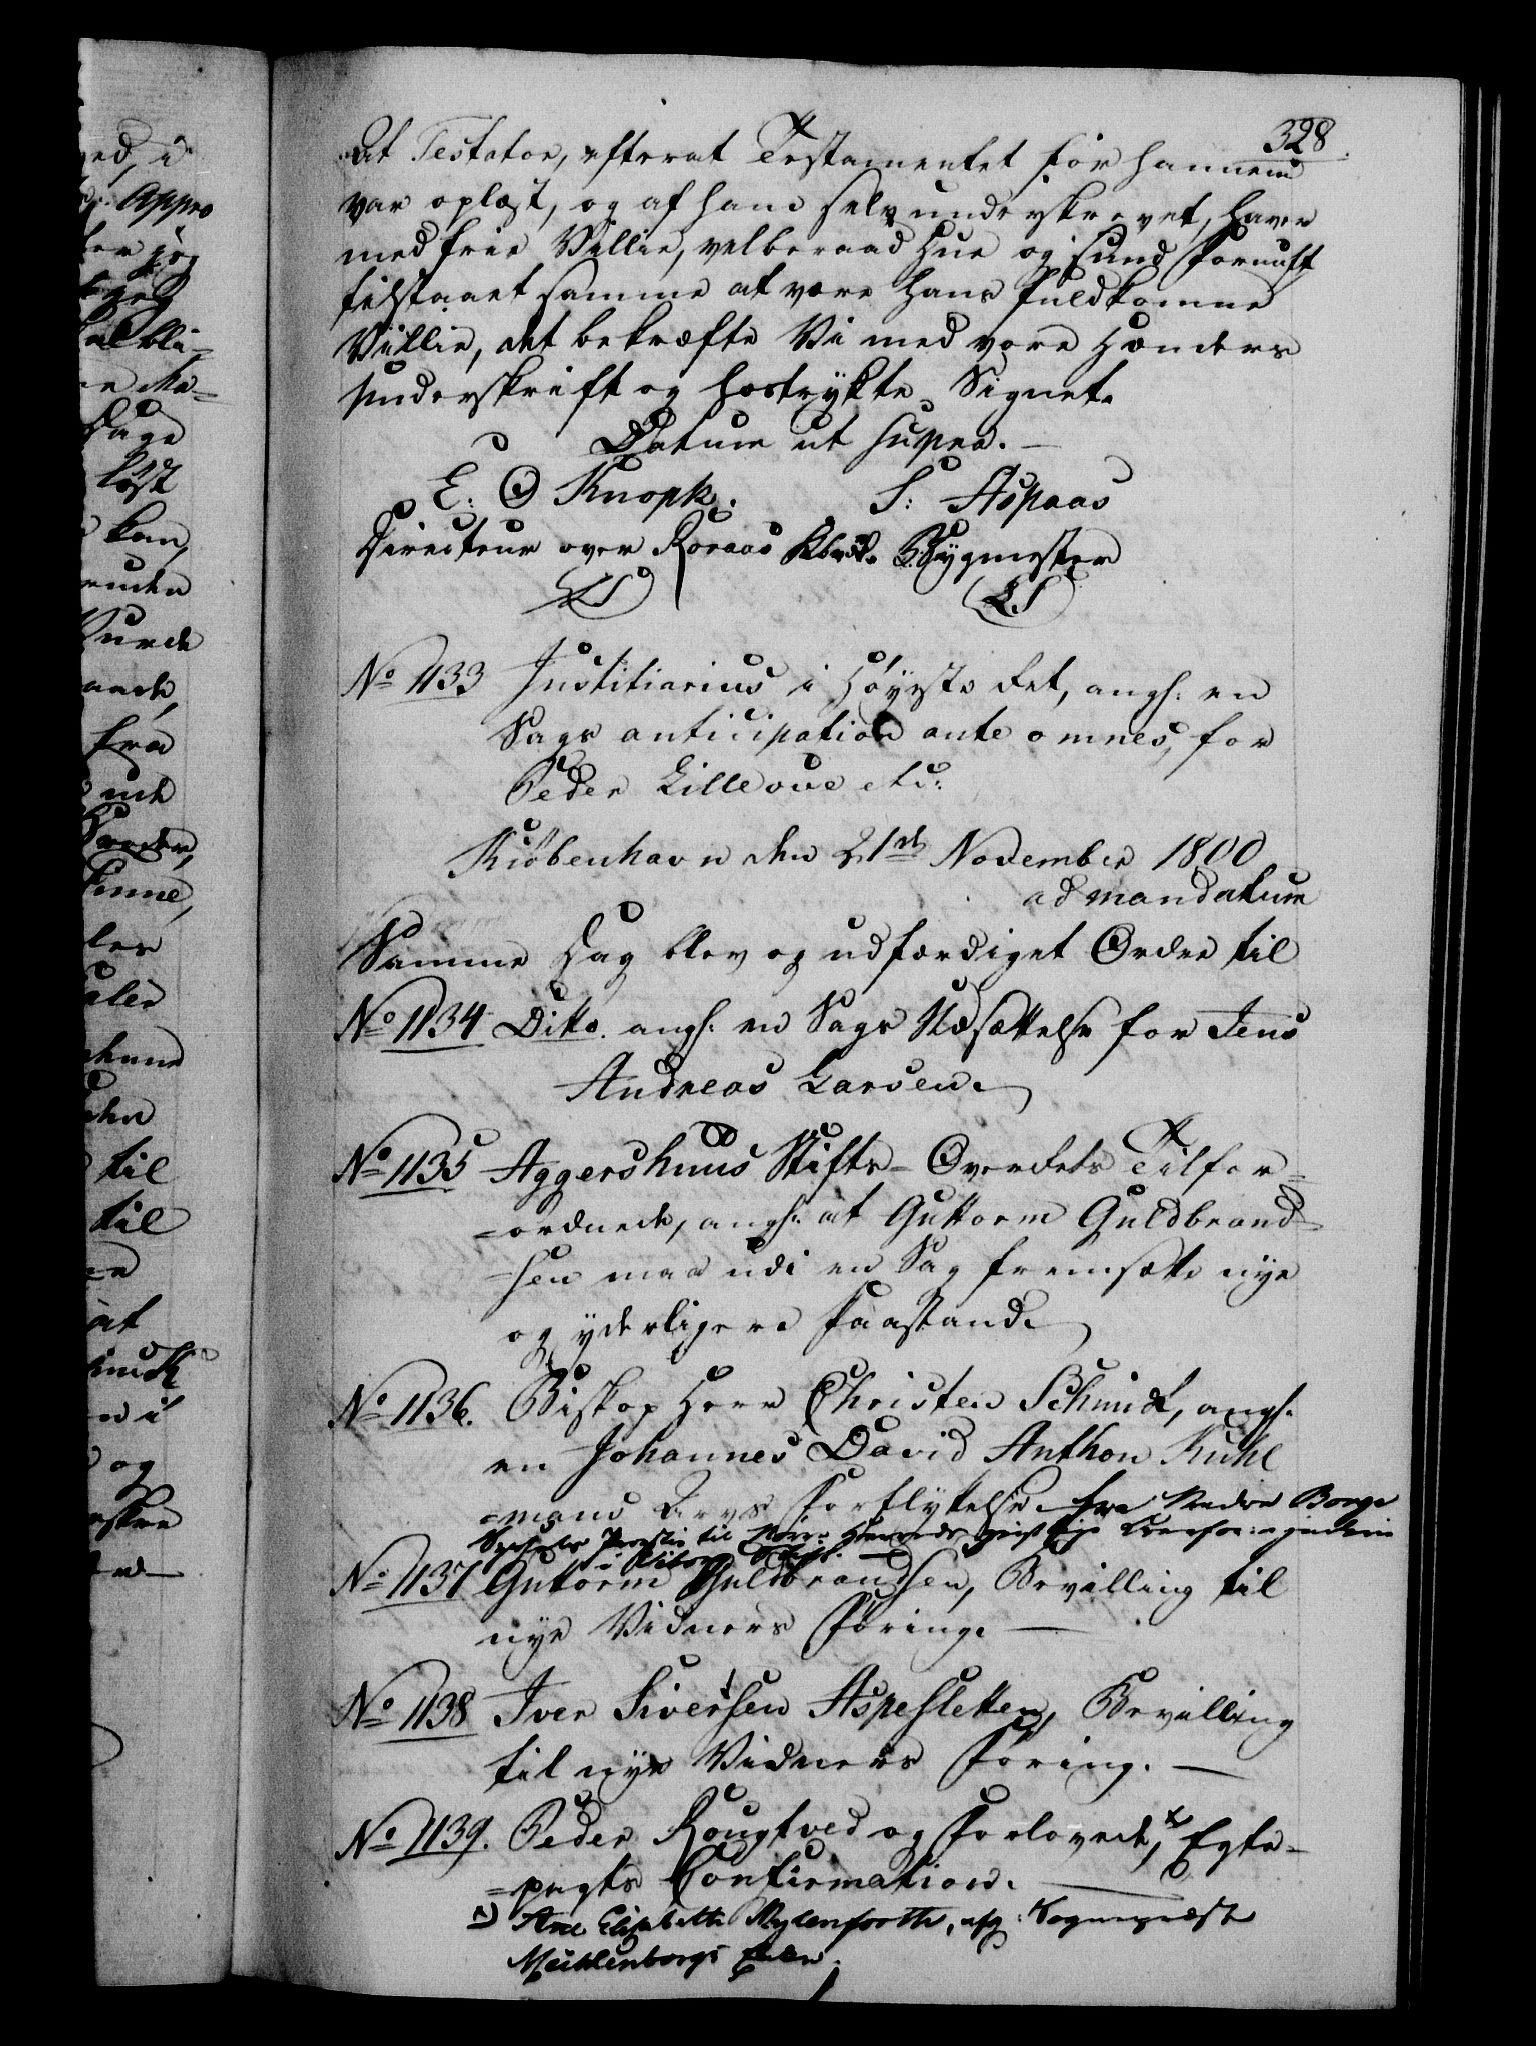 328.
At Testator, efterat Testamentet for hannem
var oplæst, og af ham selv underskrevet, haver
med frie Villie, velberaad Hue og sund Fornuft
tilstaaet samme at være hans fuldkomne
Villie, det bekræfte Vi med vore Hænders
underskrift og hostrykte Signet.
Datum ut supra.
E: O Knoph. S: Aspaas
Directeur over Røraas Kbrvk. Bygmester
LS LS
No 1133 Justitiarius i Høyeste Ret, angl: en
Sags anticipation ante omnes, for
Peder Lilleove etc:
Kiøbenhavn den 21de November 1800
ad mandatum
Samme Dag blev og udfærdiget Ordre til
No 1134 Ditto. angl: en Sags Udsættelse for Jens
Andreas Larsen.
No 1135 Aggershuus Stifts-Overrets Tilfor-
=ordnede, angl: at Guttorm Guldbrand-
=sen maa udi en Sag fremsætte nye
og yderligere Paastand.
No 1136. Biskop Herr Christen Schmidt, angl:
en Johannes David Anthon Kuhl
=mans Arvs Forflyttelse fra Nedre Borge
Syssels Provstie til Nørre Herreds geistlige
i Viborg Stift.
No 1137 Guttorm Guldbrandsen, Bevilling til
nye Vidners Føring.
No 1138 Iver Siversen Aspesletten, Bevilling
til nye Vidners Føring.
No 1139. Peder Rougtved og Forlovede,× Egte-
=pagts Confirmation.
×) Ane Elisabeth Mylenforth, afg: Sognepræst
Mechlenborgs Enke.